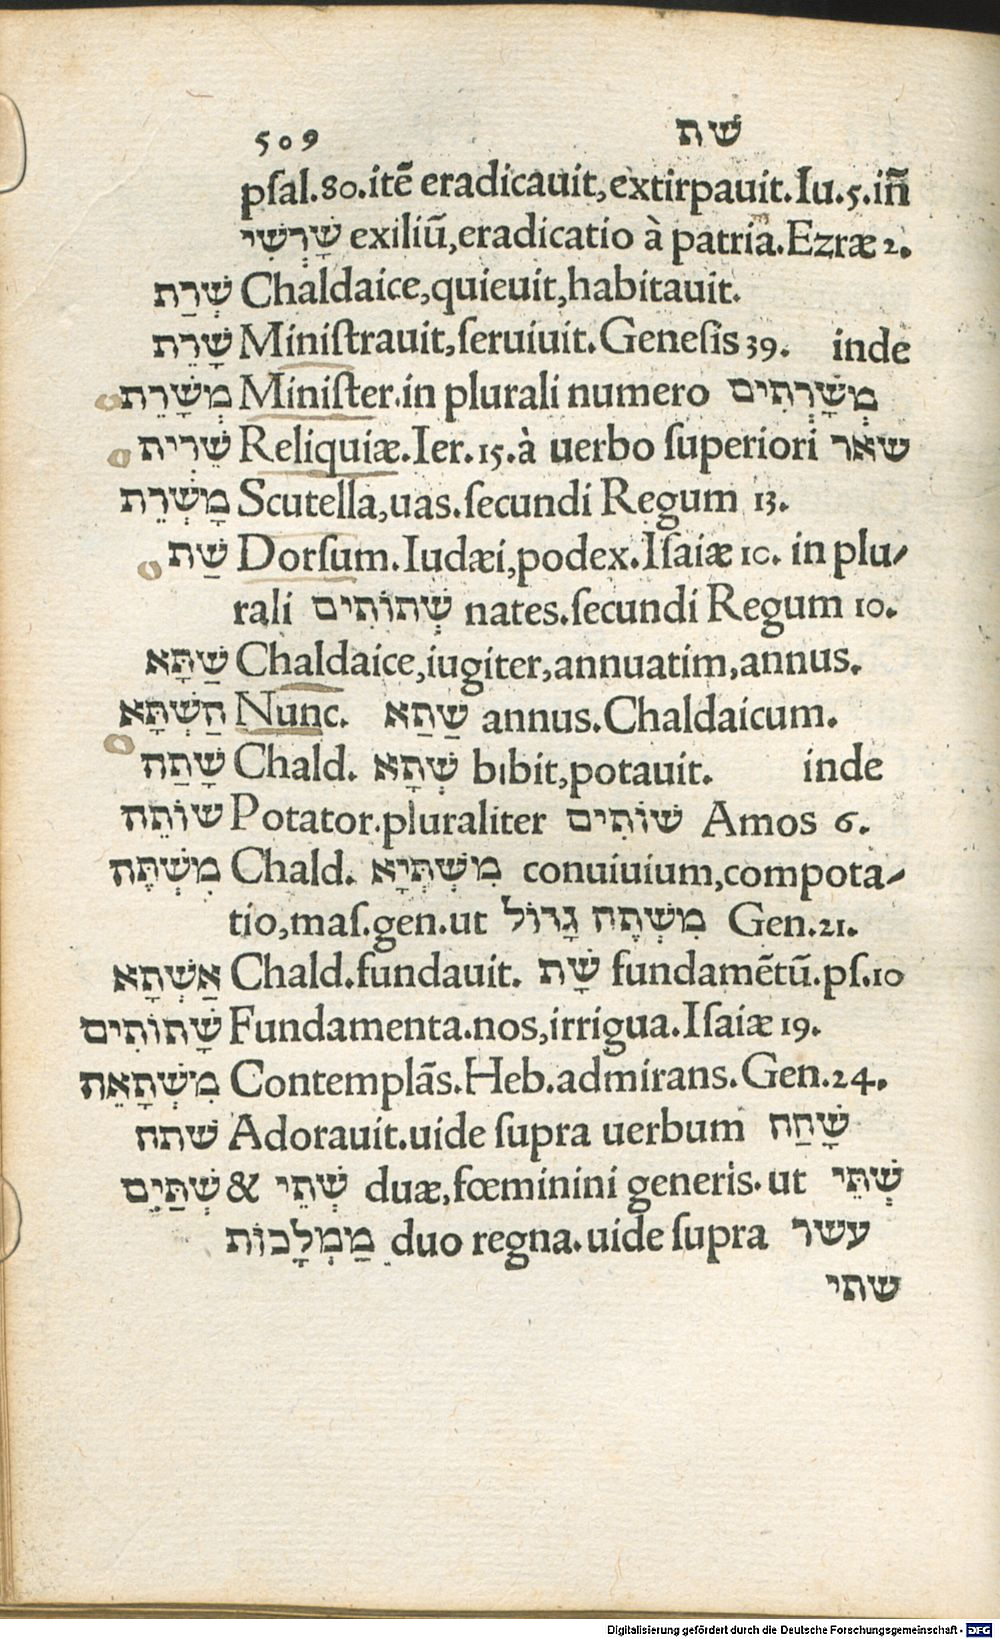 509 שׁת
pſal.80.itē eradicauit,extirpauit.Iu.5.iñ
שָׁרְשִׁי exiliū,eradicatio à patria.Ezræ 2.
שְׁרַת Chaldaice,quieuit,habitauit.
שָׁרֵת Miniſtrauit,ſeruiuit.Geneſis 39. inde
מְשָׁרֵת Miniſter.in plurali numero מְשָׁרְתִים
שְׁרִית Reliquiæ.Ier.15.à uerbo ſuperiori שאר
מָשְׁרֵת Scutella,uas.ſecundi Regum 13.
שַׁת Dorſum.Iudæi,podex.Iſaiæ 10. in plu-
rali שְׁתוֹתִים nates.ſecundi Regum 10.
שַׁתָּא Chaldaice,iugiter,annuatim,annus.
הַשְׁתָּא Nunc. שַׁתַּא annus.Chaldaicum.
שָׁתַה Chald. שְׁתָא bibit,potauit. inde
שׁוֹתֵה Potator.pluraliter שׁוֹתִים Amos 6.
מִשְׁתֶּה Chald. מִשְׁתְּיָא conuiuium,compota-
tio,maſ.gen.ut מִשְׁתֶּה גָדוֹל Gen.21.
אַשְׁתָא Chald.fundauit. שָׁת fundamētū.pſ.10
שָׁתוֹתִים Fundamenta.nos,irrigua.Iſaiæ 19.
מִשְׁתָּאֵה Contemplās.Heb.admirans.Gen.24.
שׁתח Adorauit.uide ſupra uerbum שָׁחַח
שְׁתַּיִם & שְׁתֵי duæ,fœminini generis.ut שְׁתֵּי
מַמְלָכוֹת duo regna.uide ſupra עשר
שתי
Digitalisierung gefördert durch die Deutsche Forschungsgemeinschaft - DFG